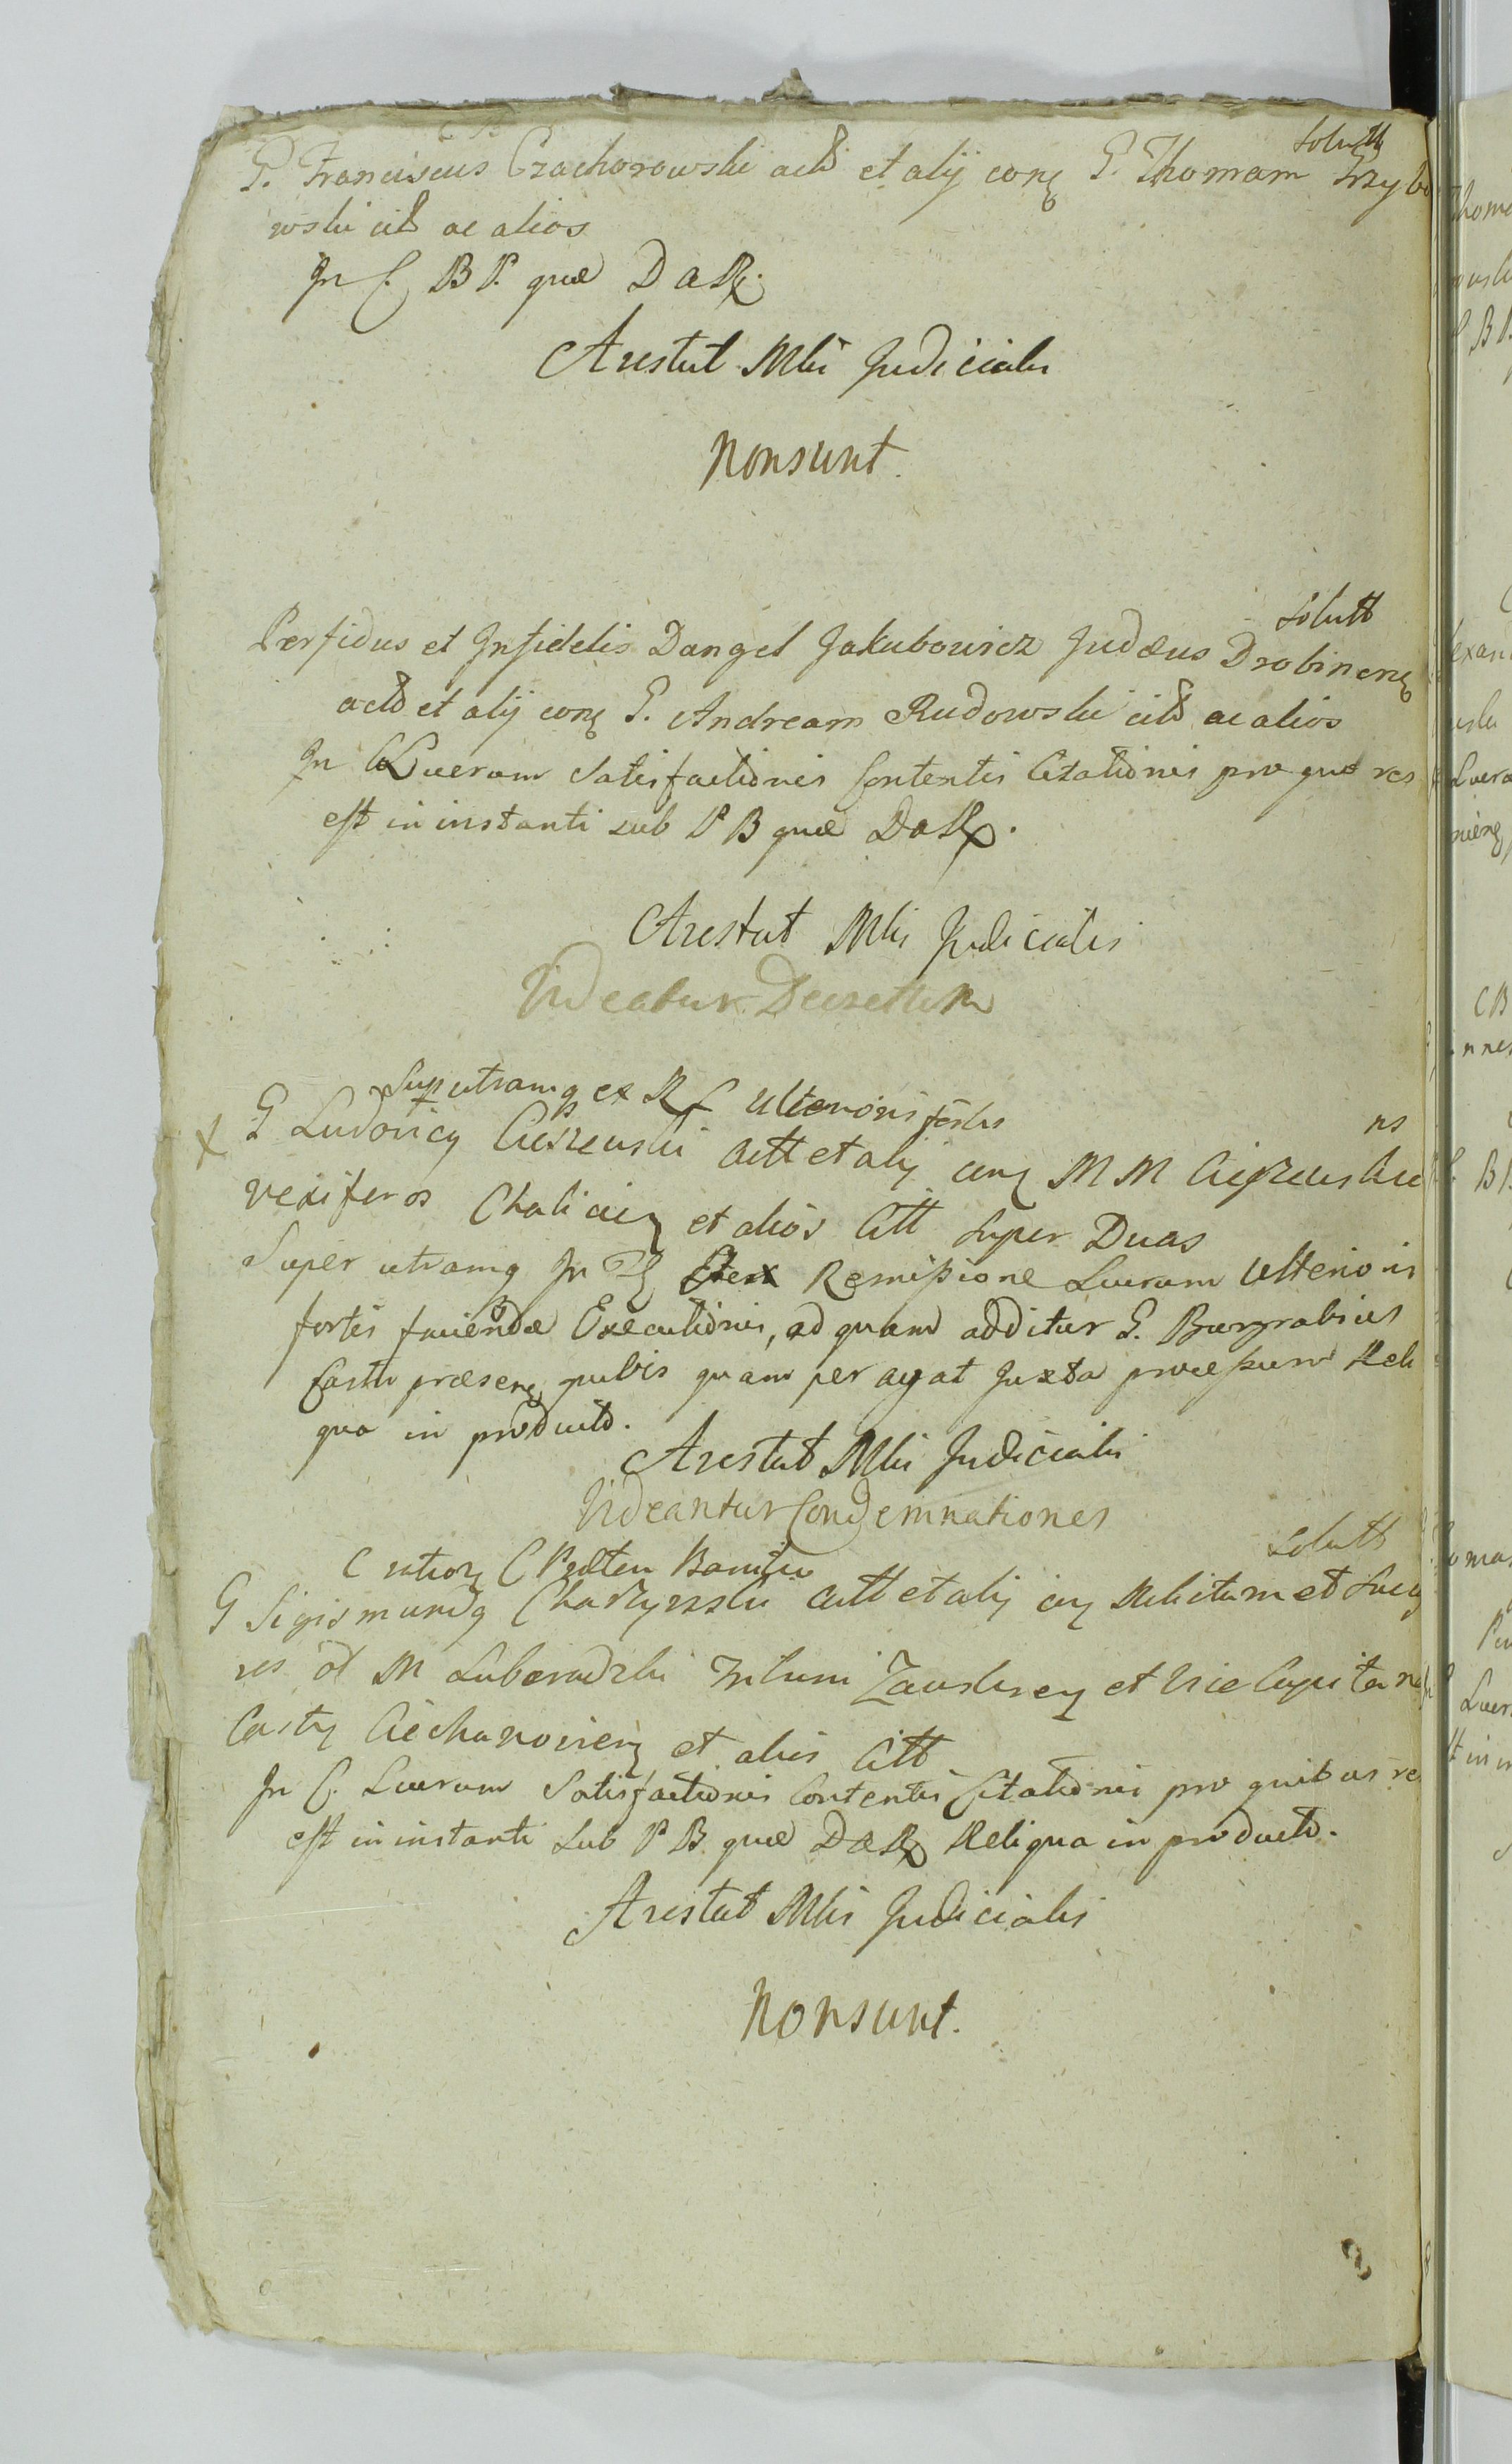 solutt
G. Franciscus Czachorowski actt et alij conq G. Thomam Grzybo
wski citt ac alios
In C. B P. quæ DaRx.
Arestat Mlis Judicialis
Nonsunt.
solutt
Perfidus et Infidelis Dangel Jakubowicz Judæus Drobinenq
actt et alij conq G. Andream Rudowski citt ac alios
In C Lucrum Satisfactionis Contentis Citationis pro quo res
est in instanti sub P B quæ DaRx.
Arestat Mlis Judicialis
Videatur Decretum
Sup utramq ex R C Ulterioris fortis
ns
X G Ludovicq Cieszewski Actt et alij cenq M M Cieszewskie
vexiferos Chalicien et alios Citt super Duas
Super utramq In ex Remissione Lucrum Ulterioris
fortis faciendæ Executionis, ad quam additur G. Burgrabius
Castri præsenq quibis quam peragat Juxta processum Reli
qua in producto.
Arestat Mlis Judicialis
Videantur Condemnationes
solutt
C Banitio
G Sigismundq actt et alij cenq Relictam et Succ
res ol M Luberadzki Zauskrenq et Vice Capitan
Castrq Ciechanovienq et alios Citt
In C. Lucrum Satisfactionis Contentis Citationis pro quibus res
est in instanti sub P B quæ DaRx Reliqua in producto.
Arestat Mlis Judicialis
Nonsunt.